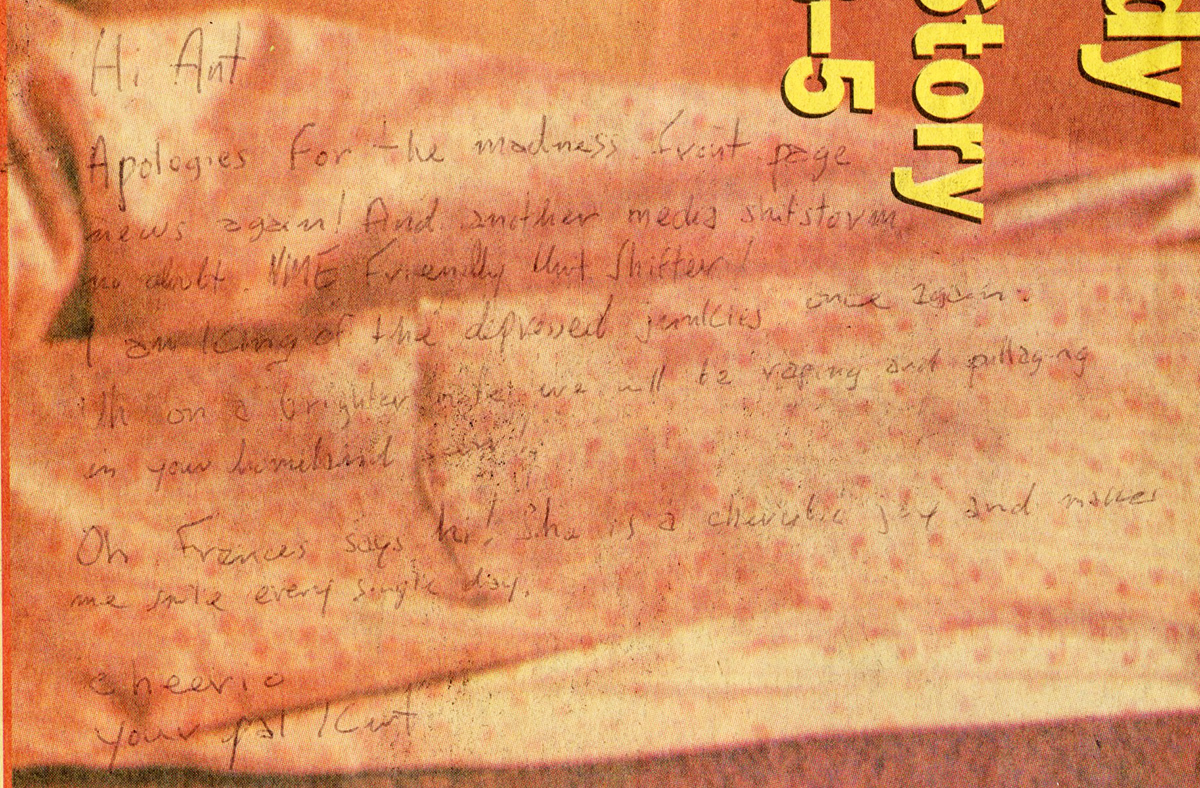 Hi Ant
Apologies For the madness. Front page
news again! And another media shitstorm
no doubt. NME Friendly that Shifter!
I am King of the depressed junkies once again.
on a brighter note we will be raping and pillaging
in your homeland
Oh Frances says hi! She is a cherubic joy and makes
me smile every single day.
cheerio
your pal Kurt
dy
Story
–5